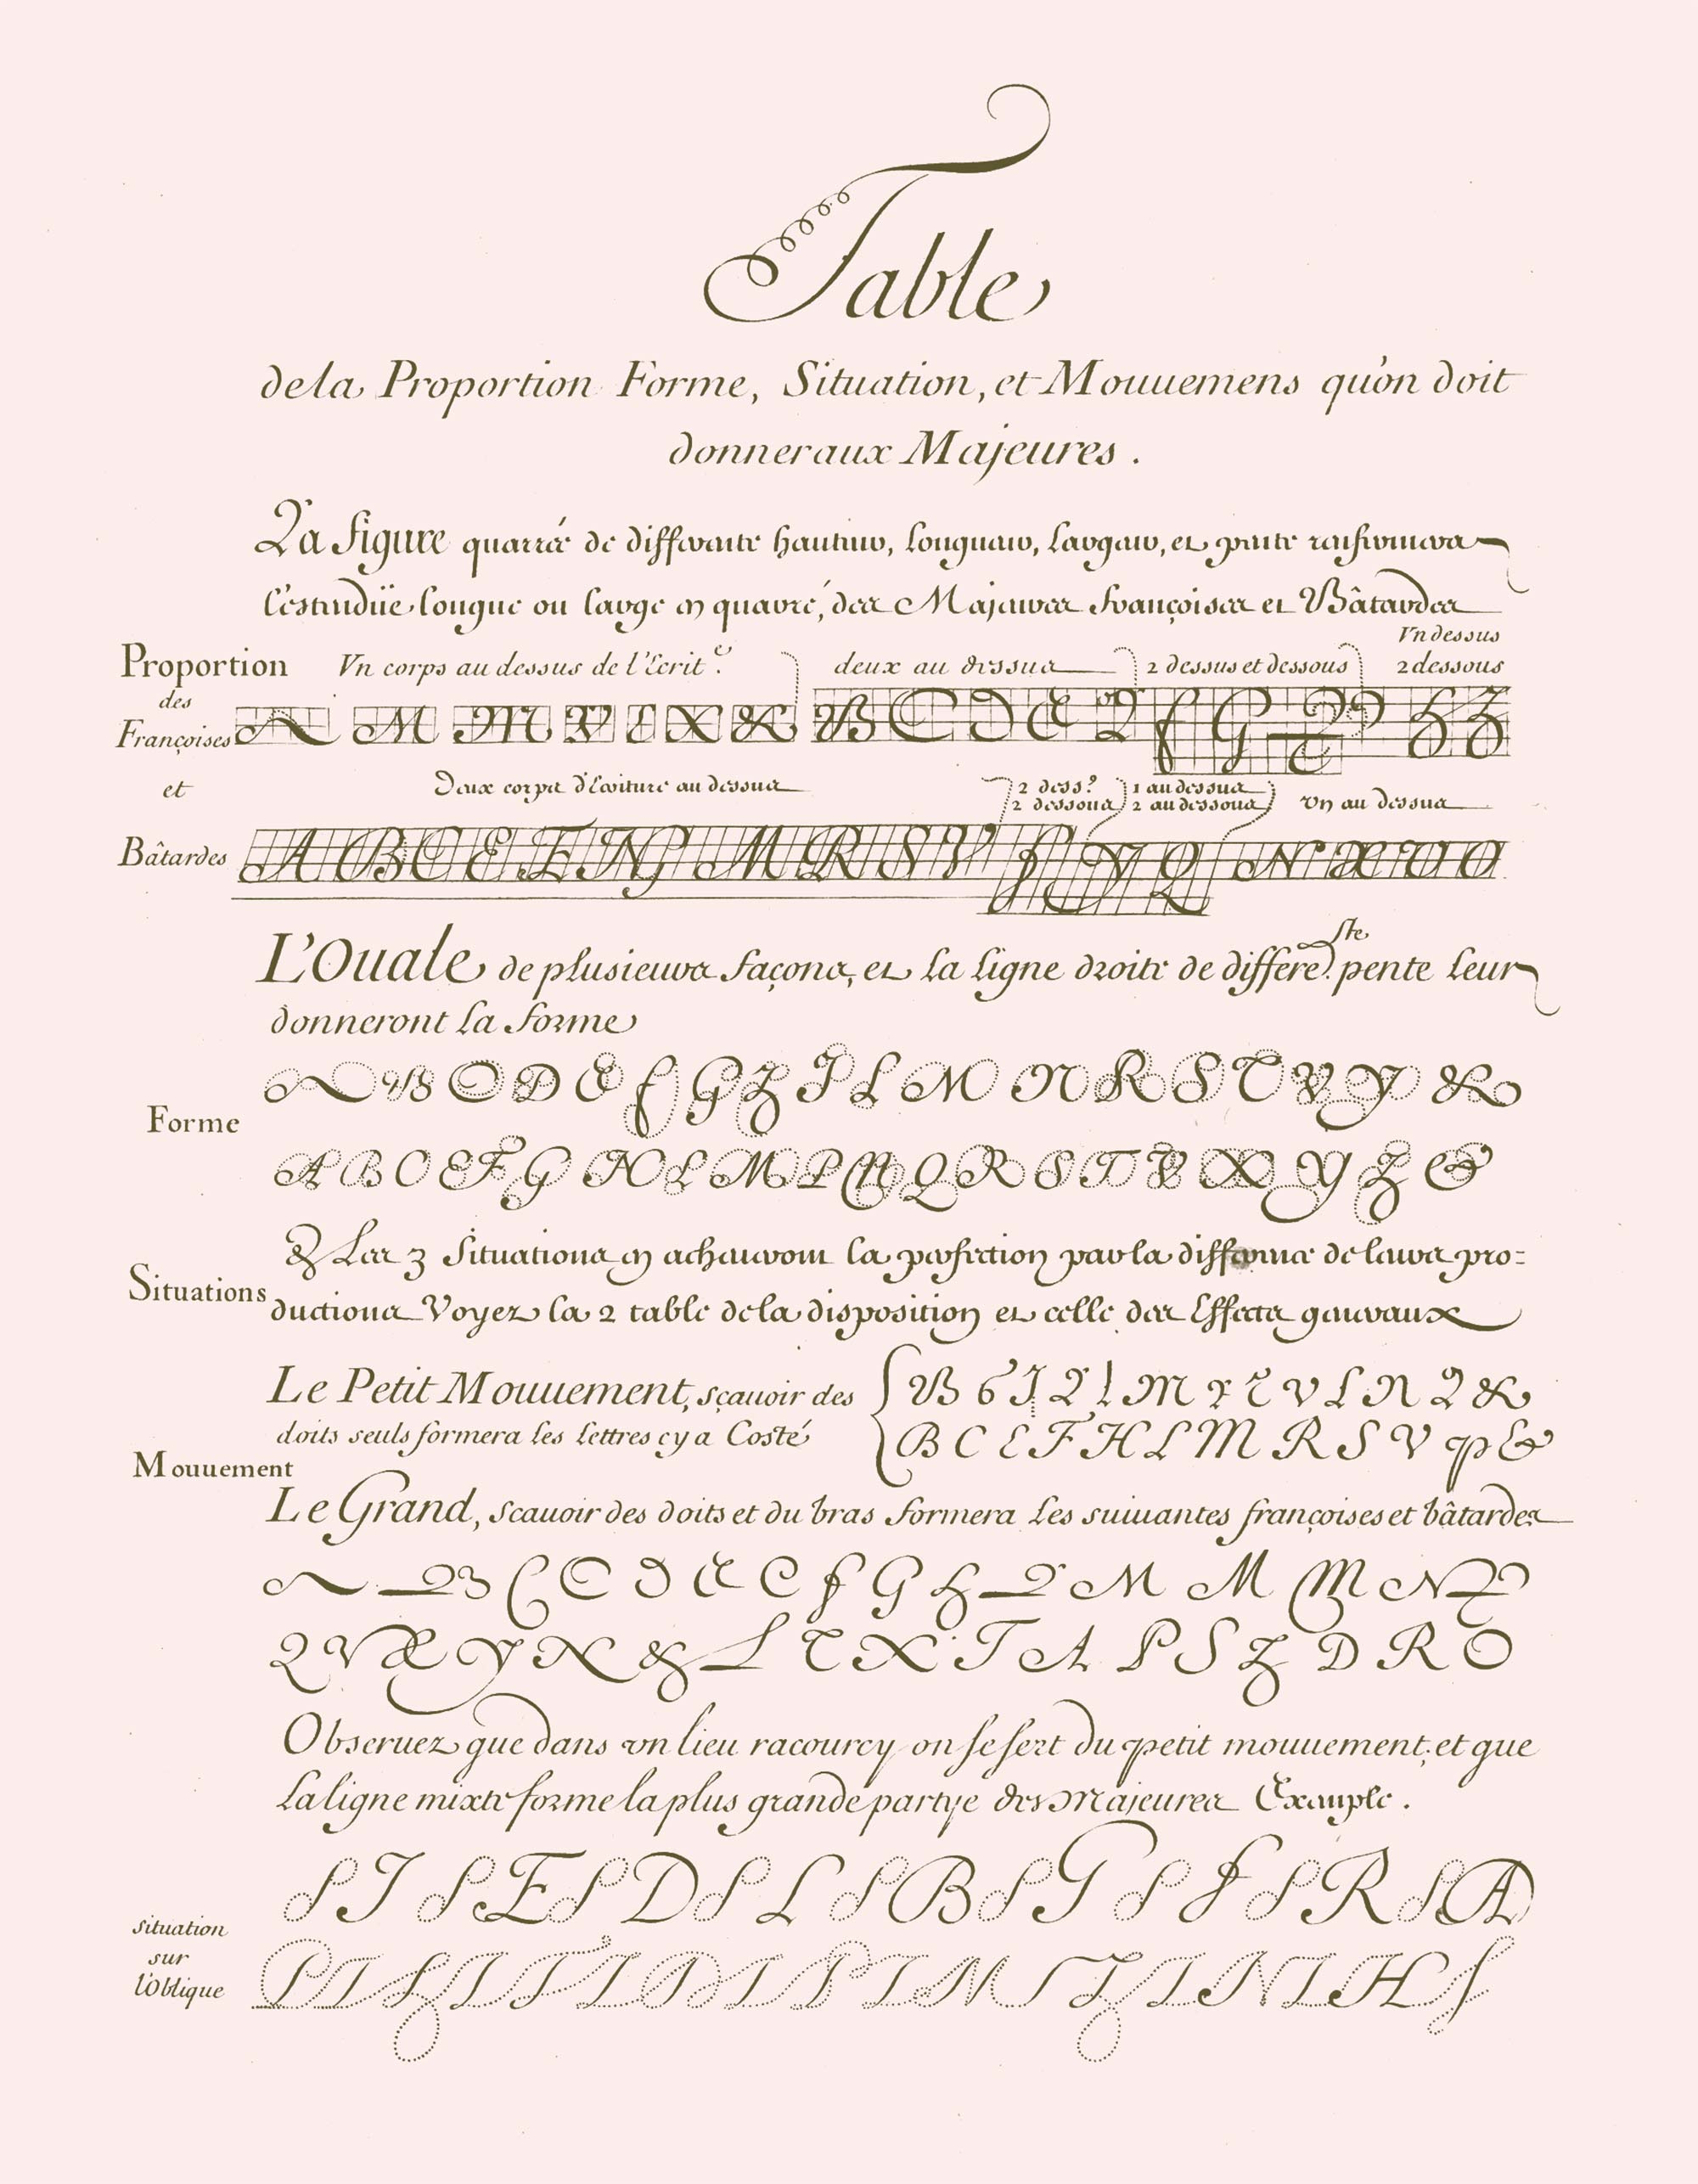 Table
de la Proportion Forme, Situation, et Mouuemens qu'on doit
donner aux Majeures.
La figure quarrée de differente hauteur, longueur, largeur, et pente renfermera
l'estendüe longue ou large en quarré, des Majeures françoises et Bâtardes
Proportion
des
Françoises
et
Bâtardes
Vn corps au dessus de l'Ecrit.e
deux au dessus
2 dessus et dessous
Vn dessus
2 dessous
Deux corps d'Ecriture au dessus
2 dess.s
2 dessous
1 au dessus
2 au dessous
Vn au dessus
A B C E F N M R S V
L'Ouale de plusieurs façons, et la ligne droite de differe.ste pente leur
donneront la forme
Forme
A B C D E f G H J L M N R S T V Y &
A B C E F G N L M P N Q R S T V X Y Z &
Situations
& Les 3 Situations en acheuront la perfection par la difference de leurs pro=
ductions Voyez la 2 table de la disposition et celle des Effects generaux
Mouuement
Le Petit Mouuement, sçauoir des
doits seuls formera les lettres cy a Costé
B C E F H L M R S V P &
Le Grand, scauoir des doits et du bras formera les suiuantes françoises et bâtardes
Q V R Y X & L T X T A P S Z D R O
Obseruez que dans vn lieu racourcy on se sert du petit mouuement; et que
La ligne mixte forme la plus grande partye des Majeures Example.
S J S E S D S L S B S G S F S R S A
situation
sur
l'Oblique